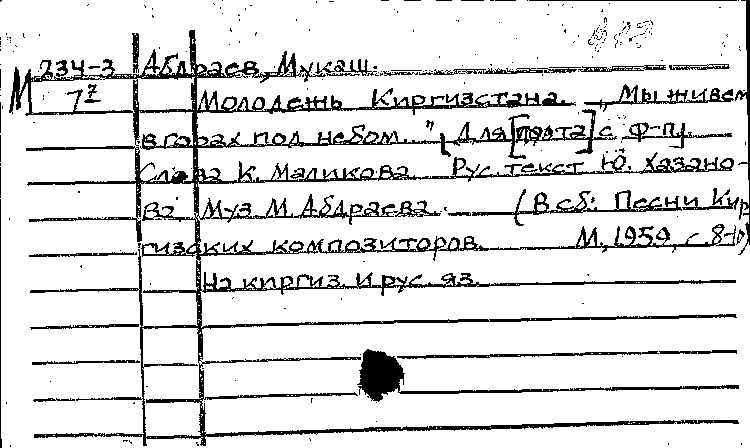 М 234-3 Абдраев, Мукаш.
7² Молодежь Киргизстана. „Мы живем
в горах под небом..." [Для [хора] с ф-п].
Слова К. Маликова Рус. текст Ю. Хазано-
ва. Муз. М. Абдраева. (В сб: Песни Кир
гизских композиторов. М., 1959, с. 8-10)
На киргиз. и рус. яз.